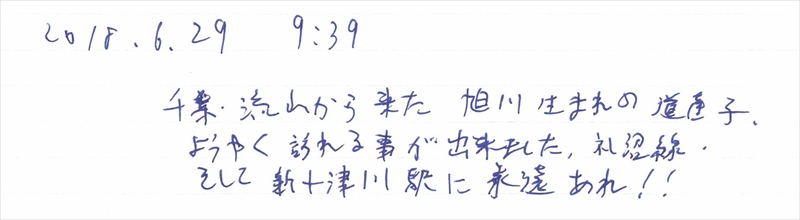 2018.6.29 9:39
千葉・流山から来た 旭川生まれの道産子、
ようやく訪れる事が出来ました、札沼線・
そして新十津川駅に永遠あれ!!